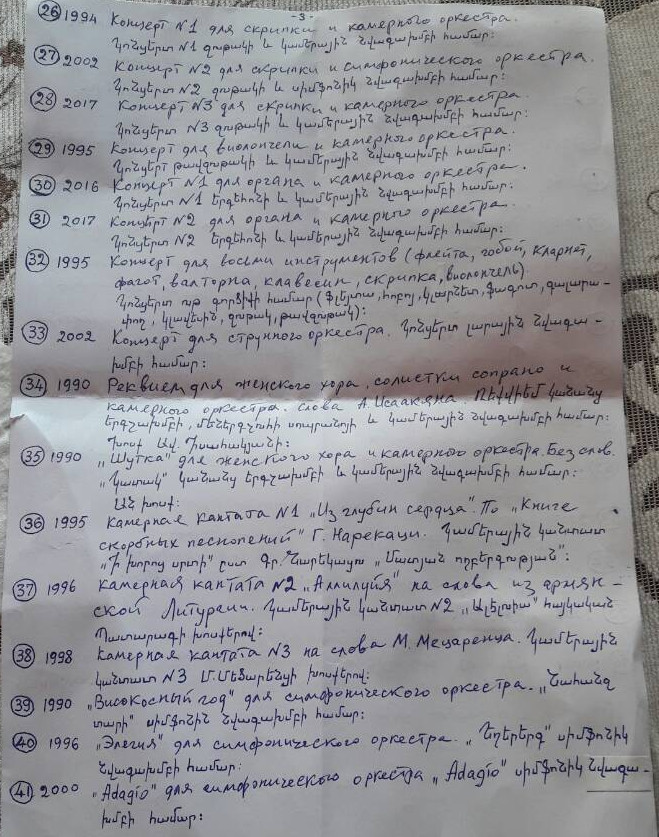 -3-
26 1994 Концерт N1 для скрипки и камерного оркестра.
Կոնցերտ N1 ջութակի և կամերային նվագախմբի համար:
27 2002 Концерт N2 для скрипки и симфонического оркестра.
Կոնցերտ N2 ջութակի և սիմֆոնիկ նվագախմբի համար:
28 2017 Концерт N3 для скрипки и камерного оркестра.
Կոնցերտ N3 ջութակի և կամերային նվագախմբի համար:
29 1995 Концерт для виолончели и камерного оркестра.
Կոնցերտ թավջութակի և կամերային նվագախմբի համար:
30 2016 Концерт N1 для органа и камерного оркестра.
Կոնցերտ N1 երգեհոնի և կամերային նվագախմբի համար:
31 2017 Концерт N2 для органа и камерного оркестра.
Կոնցերտ N2 երգեհոնի և կամերային նվագախմբի համար:
32 1995 Концерт для восьми инструментов (флейта, гобой, кларнет,
фагот, валторна, клавесин, скрипка, виолончель).
Կոնցերտ ութ գործիքի համար (ֆլեյտա, հոբոյ, կլարնետ, ֆագոտ, գալարա-
փող, կլավեսին, ջութակ, թավջութակ):
33 2002 Концерт для струнного оркестра. Կոնցերտ լարային նվագա-
խմբի համար:
34 1990 Реквием для женского хора, солистки сопрано и
камерного оркестра. Слова А. Исаакяна. Ռեքվիեմ կանանց
երգչախմբի, մեներգչուհի սոպրանոյի և կամերային նվագախմբի համար:
Խոսք Ավ. Իսահակյանի:
35 1990 „Шутка" для женского хора и камерного оркестра. Без слов.
„Կատակ" կանանց երգչախմբի և կամերային նվագախմբի համար:
Առանց խոսքի:
36 1995 Камерная кантата N1 „Из глубин сердца". По „Книге
скорбных песнопений" Г. Нарекаци. Կամերային կանտատ
„Ի խորոց սրտի" ըստ Գր. Նարեկացու „Մատյան ողբերգության":
37 1996 Камерная кантата N2 „Аллилуйя" на слова из армян-
ской Литургии. Կամերային կանտատ N2 „Ալելույա" հայկական
Պատարագի խոսքերով:
38 1998 Камерная кантата N3 на слова М. Мецаренца. Կամերային
կանտատ N3 Մ. Մեծարենցի խոսքերով:
39 1990 „Високосный год" для симфонического оркестра. „Նահանջ
տարի" սիմֆոնիկ նվագախմբի համար:
40 1996 „Элегия" для симфонического оркестра. „Եղերերգ" սիմֆոնիկ
նվագախմբի համար:
41 2000 „Adagio" для симфонического оркестра „Adagio" սիմֆոնիկ նվագա-
խմբի համար: